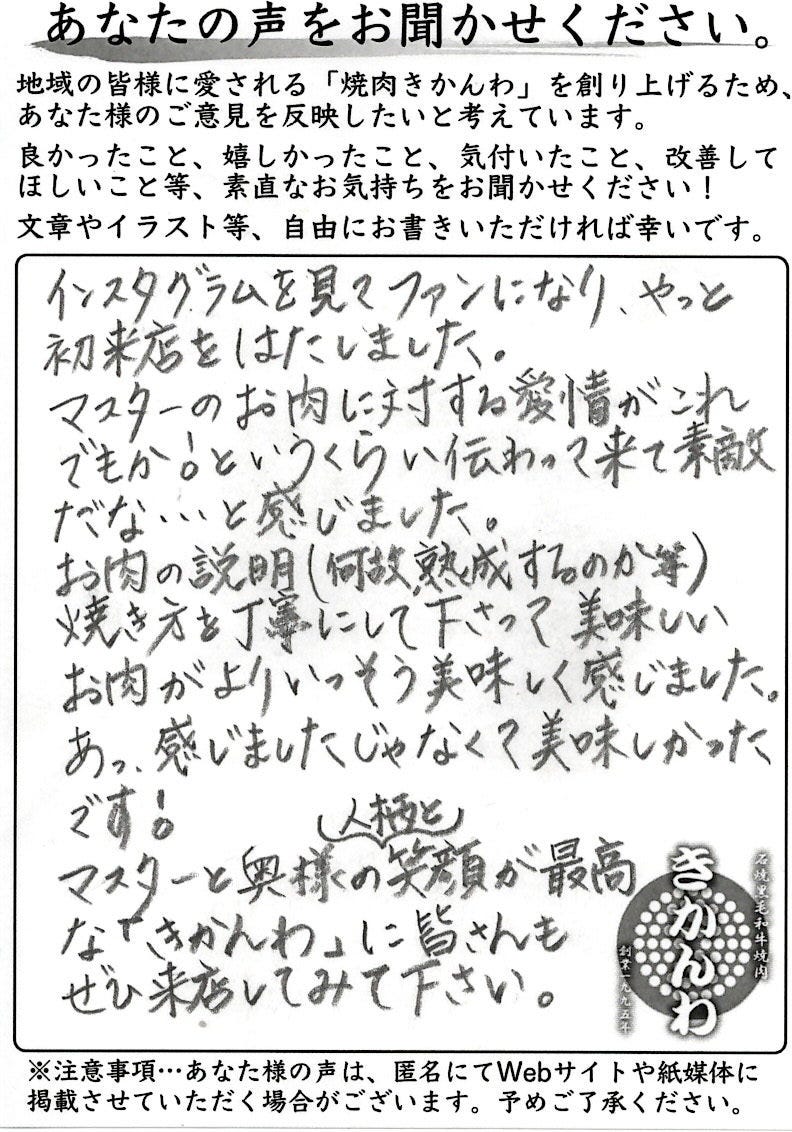 あなたの声をお聞かせください。
地域の皆様に愛される「焼肉きかんわ」を創り上げるため、
あなた様のご意見を反映したいと考えています。
良かったこと、嬉しかったこと、気付いたこと、改善して
ほしいこと等、素直なお気持ちをお聞かせください！
文章やイラスト等、自由にお書きいただければ幸いです。
インスタグラムを見てファンになり、やっと
初来店をはたしました。
マスターのお肉に対する愛情がこれ
でもか！というくらい伝わって来て素敵
だな…と感じました。
お肉の説明(何故熟成するのか等)
焼き方を丁寧にして下さって美味しい
お肉がよりいっそう美味しく感じました。
あっ、感じましたじゃなくて美味しかった
です！
人柄と
マスターと奥様の笑顔が最高
な「きかんわ」に皆さんも
ぜひ来店してみて下さい。
石焼黒毛和牛焼肉
きかんわ
創業一九九五年
※注意事項…あなた様の声は、匿名にてWebサイトや紙媒体に
掲載させていただく場合がございます。予めご了承ください。